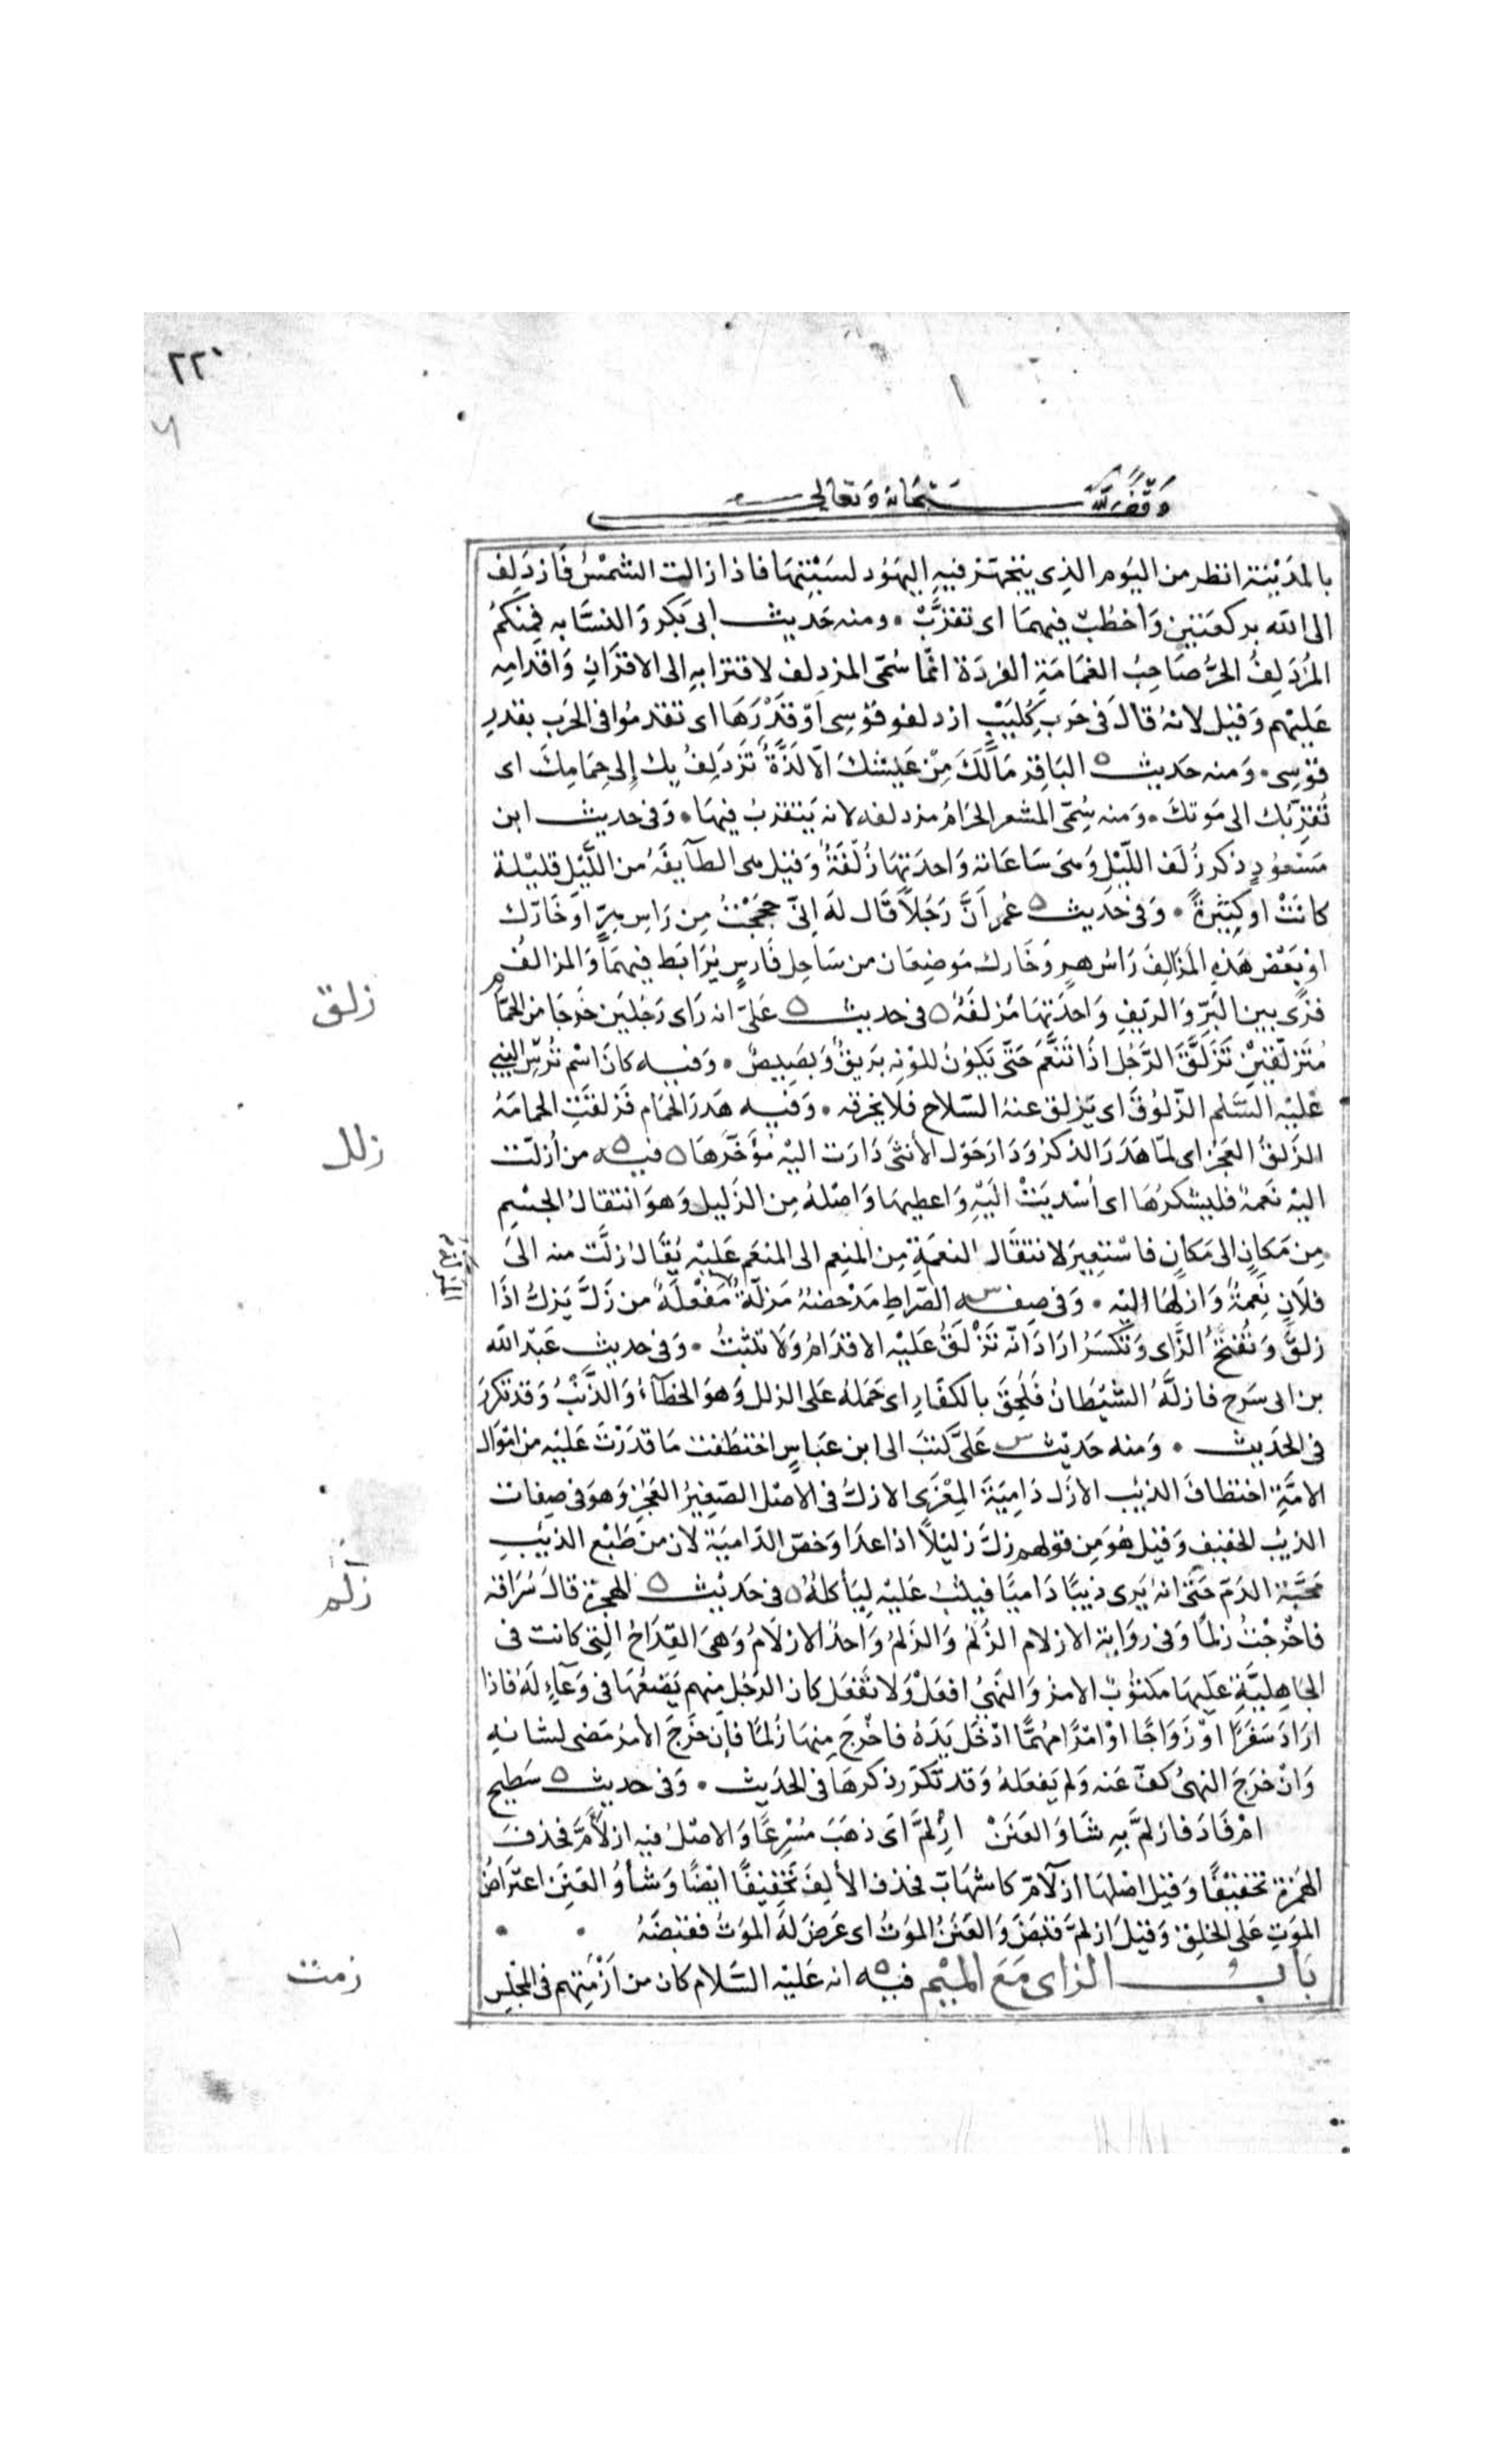 ٢٢٠
وقف لله سبحانه وتعالى
بالمدينة انظر من اليوم الذى يتجهز فيه اليهود لسبتها فاذا زالت الشمس فازدلف
الى الله بركعتين واخطب فيهما اى تقرب • ومنه حديث ابى بكر والنسابه فمنكم
المزدلف الحر صاحب العمامة الفردة انما سمى المزدلف لاقترابه الى الاقران واقدامه
عليهم وقيل لانه قال فى حرب كليب ازدلفو قوسى او قدرها اى تقدموا فى الحرب بقدر
قوسى • ومنه حديث ه الباقر مالك من عيشك الا لذة تزدلف بك إلى حمامك اى
تقربك الى موتك • ومنه سمى المشعر الحرام مزدلفه لانه يتقرب فيها • وفى حديث ابن
مسعود ذكر زلف الليل وهى ساعاته واحدتها زلفة وقيل هى الطآيفه من الليل قليلة
كانت او كثيرة • وفى حديث ه عمر أن رجلا قال له إنى حججت من راس هر او خارك
او بعض هذه المزالف راس هر وخارك موضعان من ساحل فارس يرابط فيهما والمزالف
قرى بين البر والريف واحدتها مزلفه ه فى حديث ه على انه راى رجلين خرجا من الحمام
متزلقين تزلق الرجل اذا تنعم حتى يكون للونه بريق وبصيص • وفيه كان اسم ترس النبى
عليه السلم الزلوق اى يزلق عنه السلاح فلا يخرقه • وفيه هدر الحمام فزلقت الحمامة
الزلق العجز اى لما هدر الذكر ودار حول الأنثى دارت اليه مؤخرها ه فيه ه من أزلت
اليه نعمة فليشكرها اى أسديت اليه واعطيها واصله من الزليل وهو انتقال الجسم
من مكان الى مكان فاستعير لانتقال النعمة من المنعم الى المنعم عليه يقال زلت منه الى
فلان نعمة وازلها اليه • وفى صفة س الصراط مدحضة مزلة مفعلة من زل يزل اذا
زلق وتفتح الزاى وتكسر اراد انه تزلق عليه الاقدام ولا تثبت • وفى حديث عبد الله
بن ابى سرح فازله الشيطان فلحق بالكفار اى حمله على الزلل وهو الخطآء والذنب وقد تكرر
فى الحديث • ومنه حديث س على كتب الى ابن عباس اختطفت ما قدرت عليه من اموال
الامة اختطاف الذيب الازل دامية المعزى الازل فى الاصل الصغير العجز وهو فى صفات
الذيب الخفيف وقيل هو من قولهم زل زليلا اذا عدا وخص الدامية لان من طبع الذيب
محبة الدم حتى انه يرى ذيبا داميا فيثب عليه ليأكله ه فى حديث ه الهجرة قال سراقه
فاخرجت زلما وفى رواية الازلام الزلم والزلم واحد الازلام وهى القداح التى كانت فى
الجاهلية عليها مكتوب الامر والنهى افعل ولا تفعل كان الرجل منهم يضعها فى وعآء له فاذا
اراد سفرا او زواجا او امرا مهما ادخل يده فاخرج منها زلما فإن خرج الأمر مضى لشانه
وان خرج النهى كف عنه ولم يفعله وقد تكرر ذكرها فى الحديث • وفى حديث ه سطيح
ام فاد فازلم به شاو العنن ازلم اى ذهب مسرعا والاصل فيه ازلأم فحذفت
الهمزة تخفيفا وقيل اصلها ازلآم كاشهاب فحذف الألف تخفيفا ايضا وشأو العنن اعتراض
الموت على الخلق وقيل ازلم قبض والعنن الموت اى عرض له الموت فقبضه
باب الزاى مع الميم فيه ه انه عليه السلام كان من أزمتهم فى المجلس
زلق
زلل
زلم
زمت